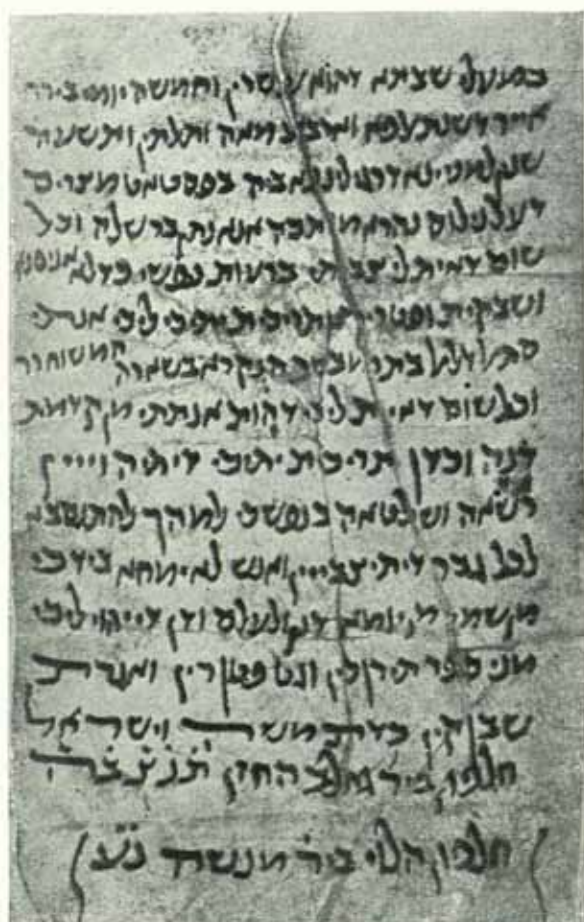 במעלי שבתא דהוא עשרין וחמשה יומי בירח
אייר דשנת אלפא וארבע מאה ותלתין ותשעה
שנין למנינא דרגילנא ביה בפסטאט מצרים
דעל נילוס נהרא מותבה אנא נתן בר שלמה וכל
שום דאית לי צביתי ברעות נפשי כדלא אניסנא
ושבקית ופטרית ותריכית יתיכי ליכי אנתי
סת בת מבשר הנקרא בשארה
וכל שום דאית ליכי דהוית אנתתי מן קדמת
דנה וכדן תריכית יתיכי דיתהוייין
רשאה ושלטאה בנפשכי למהך להתנסבא
לכל גבר דיתיצבייין ואנש לא ימחא בידכי
מן שמי מן יומא דנן ולעלם ודן דייהוי ליכי
מני ספר תירוכין וגט פטורין ואגרת
שבוקין כדת משה וישראל
חלפון ביר החזן תנצבה
חלפון הלוי ביר מנשה נ״ע